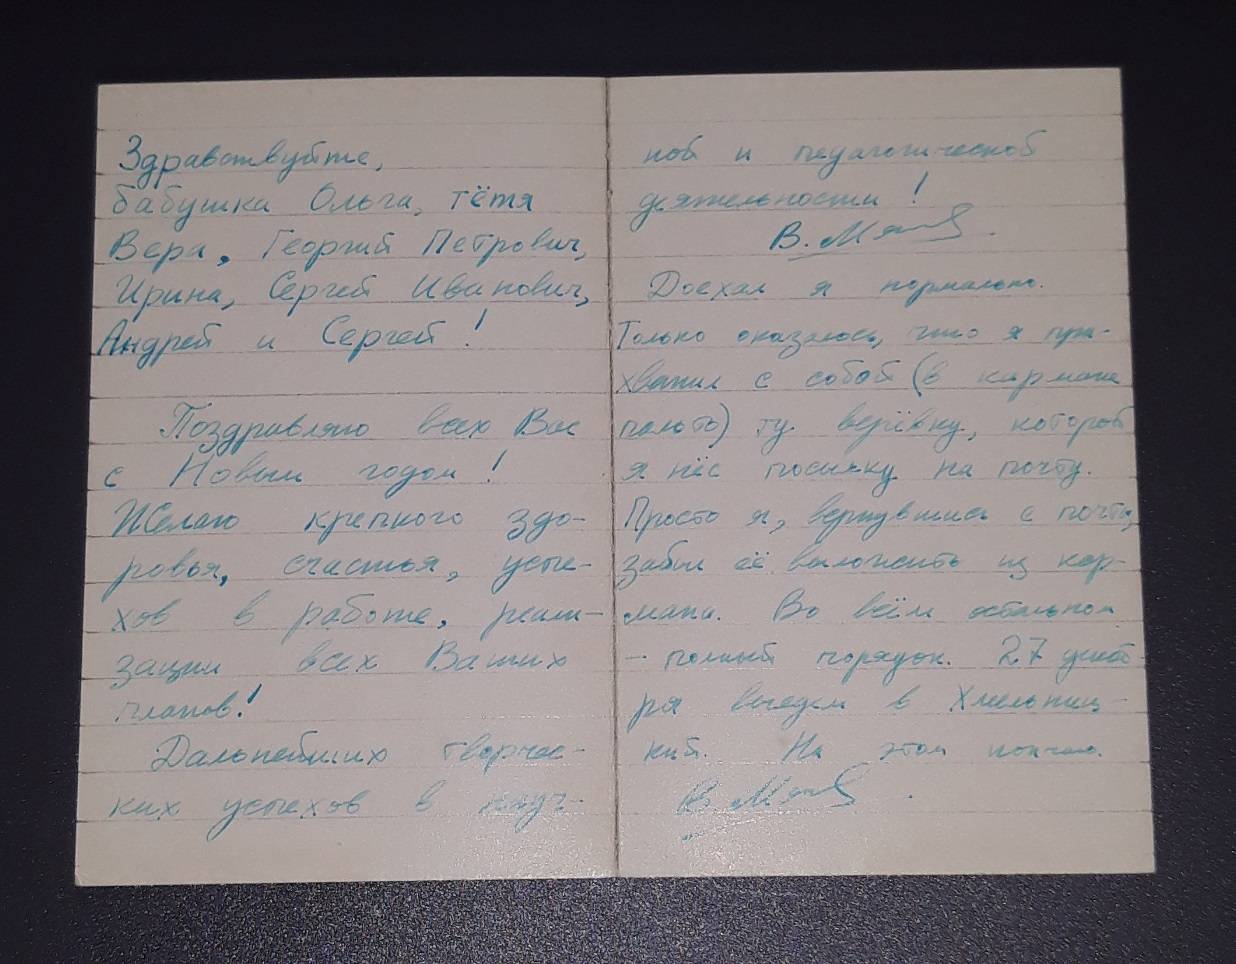 Здравствуйте,
бабушка Ольга, тётя
Вера, Георгий Петрович,
Ирина, Сергей Иванович,
Андрей и Сергей!
Поздравляю всех Вас
с Новым годом!
Желаю крепкого здо-
ровья, счастья, успе-
хов в работе, реали-
зации всех Ваших
планов!
Дальнейших творчес-
ких успехов в науч-
ной и педагогической
деятельности!
В.
Доехал я нормально.
Только оказалось, что я при-
хватил с собой (в кармане
пальто) ту верёвку, которой
я нёс посылку на почту.
Просто я, вернувшись с почты,
забыл её выложить из кар-
мана. Во всём остальном
- полный порядок. 27 декаб
ря выедем в Хмельниц-
кий. На этом кончаю.
В.